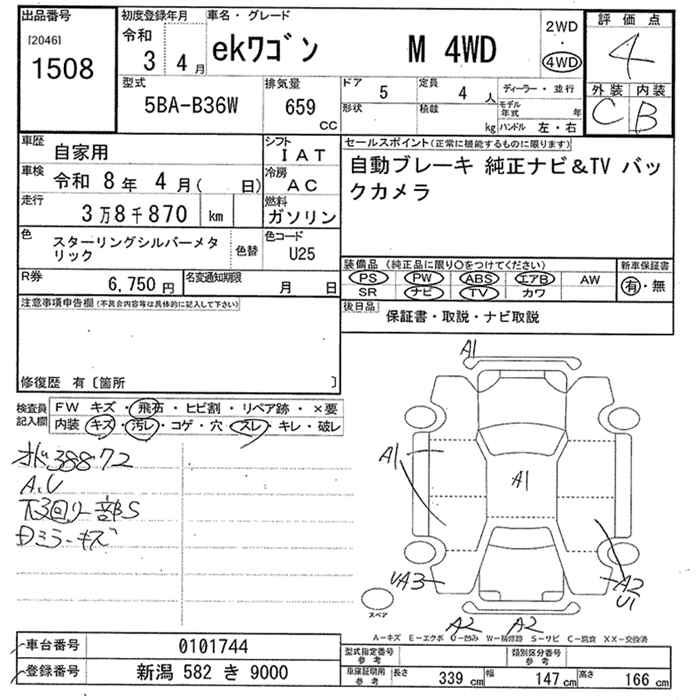 出品番号
[2046]
1508
初度登録年月
令和
3 4月
車名・グレード
ekワゴン M 4WD
2WD
・
4WD
評価点
4
外装 内装
C B
型式
5BA-B36W
排気量
659
CC
ドア
5
定員
4 人
形状
積載
kg
ディーラー・並行
モデル年式 年
ハンドル 左・右
車歴
自家用
シフト
IAT
車検
令和 8年 4月( 日)
冷房
AC
走行
3万8千870 km
燃料
ガソリン
色
スターリングシルバーメタリック
色替
色コード
U25
R券
6,750円
名変通知期限
月 日
セールスポイント(正常に機能するものに限ります)
自動ブレーキ 純正ナビ&TV バッ
クカメラ
装備品 (純正品に限り○をつけてください)
PS PW ABS エアB AW
SR ナビ TV カワ
新車保証書
有・無
後日品
保証書・取説・ナビ取説
注意事項申告欄(不具合内容等は具体的に記入して下さい)
修復歴 有〔箇所 〕
検査員
記入欄
FW キズ・飛石・ヒビ割・リペア跡・×要
内装 キズ・汚レ・コゲ・穴・スレ・キレ・破レ
オド38872
A.U
下回り一部S
Dミラーキズ
A1
A1
A1
UA3
A2
U1
A2 A2
スペア
A-キズ E-エクボ U-凹み W-補修跡 S-サビ C-腐食 XX-交換済
車台番号
0101744
登録番号
新潟 582 き 9000
型式指定番号
参考
類別区分番号
参考
車庫証明用
参考
長さ 339 cm
幅 147 cm
高さ 166 cm